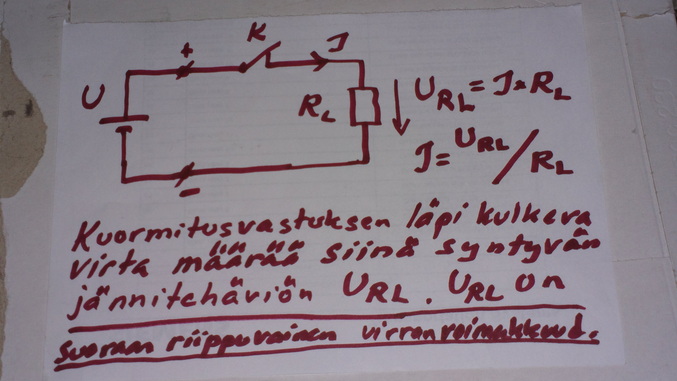 K
I
+
U
RL
URL = I * RL
I = URL / RL
-
Kuormitusvastuksen läpi kulkeva
virta määrää siinä syntyvän
jännitehäviön URL. URL on
suoraan riippuvainen virran voimakkuud.